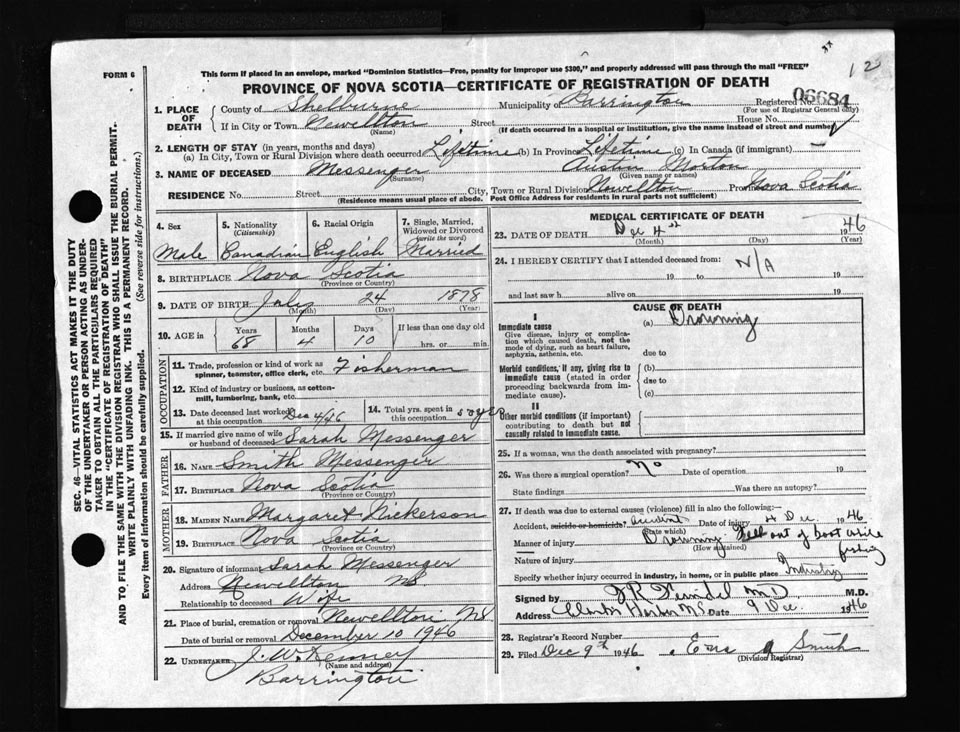 12
FORM 6
This form if placed in an envelope, marked "Dominion Statistics—Free, penalty for improper use $300," and properly addressed will pass through the mail "FREE"
PROVINCE OF NOVA SCOTIA—CERTIFICATE OF REGISTRATION OF DEATH
1. PLACE OF DEATH
County of Shelburne Municipality of Barrington Registered No. 06684
(For use of Registrar General only)
If in City or Town Newellton Street House No.
(Name) (If death occurred in a hospital or institution, give the name instead of street and number)
2. LENGTH OF STAY (in years, months and days)
(a) In City, Town or Rural Division where death occurred Lifetime (b) In Province Lifetime (c) In Canada (if immigrant) —
3. NAME OF DECEASED Messenger Austin Morton
(Surname) (Given name or names)
RESIDENCE No. Street City, Town or Rural Division Newellton Province Nova Scotia
(Residence means usual place of abode. Post Office Address for residents in rural parts not sufficient)
4. Sex Male
5. Nationality (Citizenship) Canadian
6. Racial Origin English
7. Single, Married, Widowed or Divorced (write the word) Married
8. BIRTHPLACE Nova Scotia
(Province or Country)
9. DATE OF BIRTH July 24 1878
(Month) (Day) (Year)
10. AGE in Years Months Days If less than one day old
68 4 10 hrs. or min.
OCCUPATION
11. Trade, profession or kind of work as spinner, teamster, office clerk, etc. Fisherman
12. Kind of industry or business, as cotton-mill, lumbering, bank, etc.
13. Date deceased last worked at this occupation Dec 4/46
14. Total yrs. spent in this occupation 50 yrs
15. If married give name of wife or husband of deceased Sarah Messenger
FATHER
16. NAME Smith Messenger
17. BIRTHPLACE Nova Scotia
(Province or Country)
MOTHER
18. MAIDEN NAME Margaret Nickerson
19. BIRTHPLACE Nova Scotia
(Province or Country)
20. Signature of informant Sarah Messenger
Address Newellton NS
Relationship to deceased Wife
21. Place of burial, cremation or removal Newellton NS
Date of burial or removal December 10 1946
22. UNDERTAKER J. W. Kenney
(Name and address)
Barrington
MEDICAL CERTIFICATE OF DEATH
23. DATE OF DEATH Dec 4th 1946
(Month) (Day) (Year)
24. I HEREBY CERTIFY that I attended deceased from: N/A
19 to 19
and last saw h alive on 19
CAUSE OF DEATH
I
Immediate cause (a) Drowning
Give disease, injury or complication which caused death, not the mode of dying, such as heart failure, asphyxia, asthenia, etc.
due to
Morbid conditions, if any, giving rise to immediate cause (stated in order proceeding backwards from immediate cause).
(b)
due to
(c)
II
Other morbid conditions (if important) contributing to death but not causally related to immediate cause.
25. If a woman, was the death associated with pregnancy?
26. Was there a surgical operation? No Date of operation 19
State findings Was there an autopsy?
27. If death was due to external causes (violence) fill in also the following:—
Accident, suicide or homicide? accident Date of injury 4 Dec 1946
(State which)
Manner of injury Drowning Fell out of boat while fishing
(How sustained)
Nature of injury
Specify whether injury occurred in industry, in home, or in public place Industry
Signed by M.D. M.D.
Address Clarks Harbor NS Date 9 Dec. 1946
28. Registrar's Record Number
29. Filed Dec 9th 1946 Smith
(Division Registrar)
SEC. 46—VITAL STATISTICS ACT MAKES IT THE DUTY
OF THE UNDERTAKER OR PERSON ACTING AS UNDERTAKER TO OBTAIN ALL THE PARTICULARS REQUIRED
IN THE "CERTIFICATE OF REGISTRATION OF DEATH"
AND TO FILE THE SAME WITH THE DIVISION REGISTRAR WHO SHALL ISSUE THE BURIAL PERMIT.
WRITE PLAINLY WITH UNFADING INK. THIS IS A PERMANENT RECORD.
Every item of information should be carefully supplied. (See reverse side for instructions.)